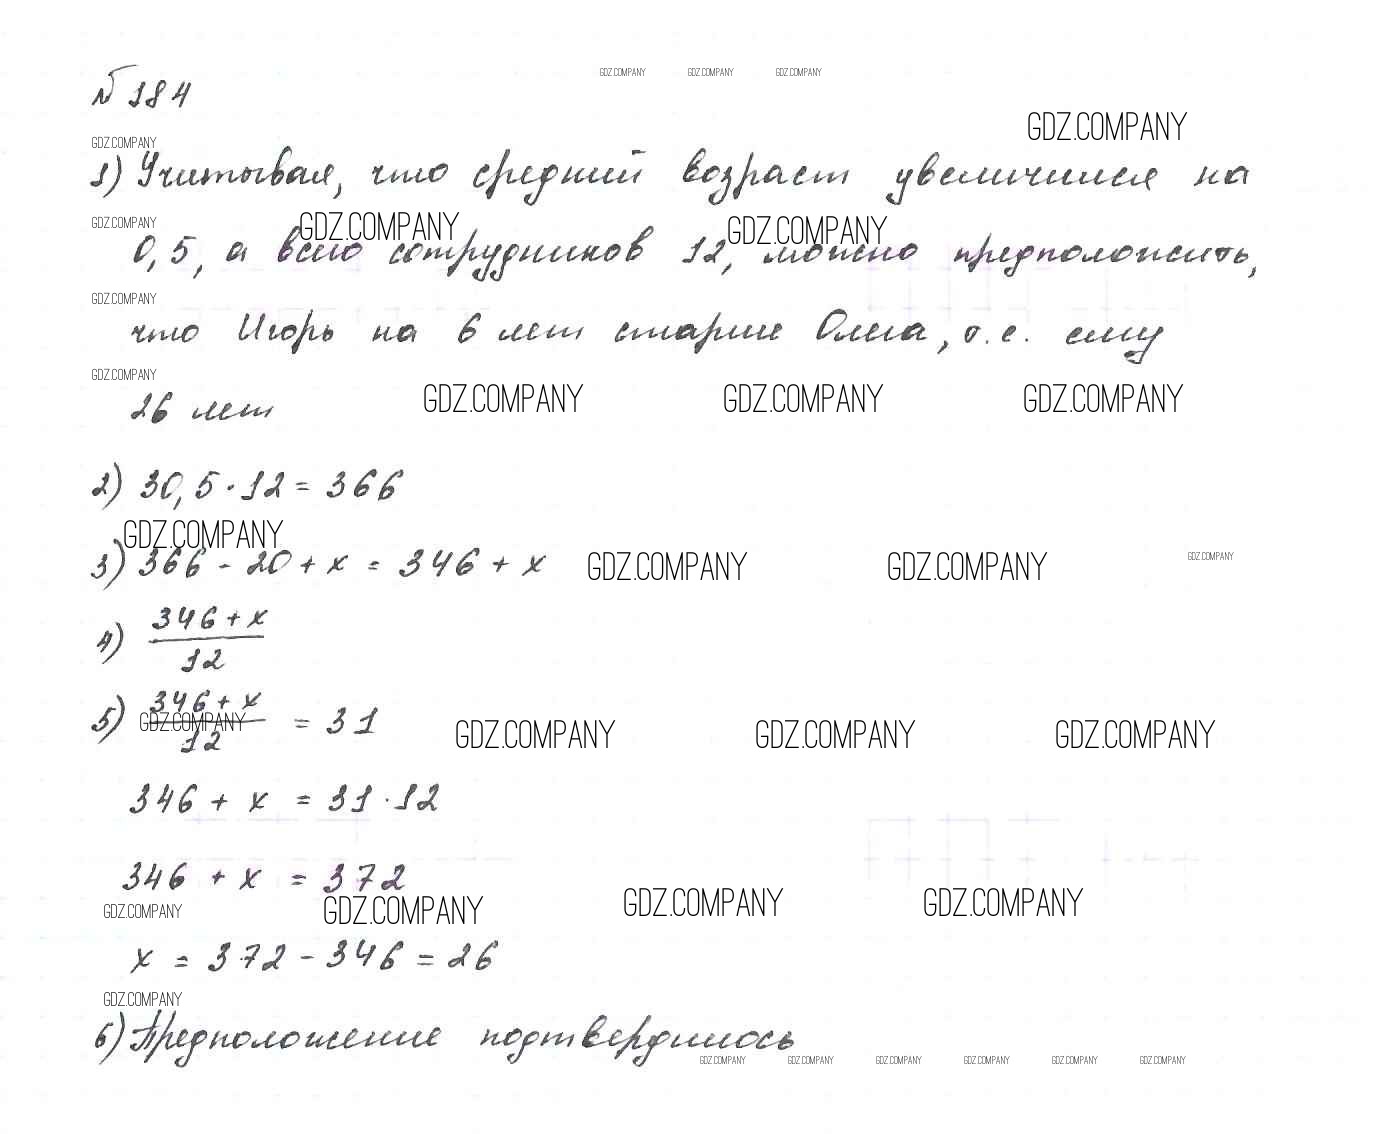 GDZ.COMPANY GDZ.COMPANY GDZ.COMPANY
№ 184
GDZ.COMPANY
GDZ.COMPANY
1) Учитывая, что средний возраст увеличился на
GDZ.COMPANY GDZ.COMPANY GDZ.COMPANY
0,5, а всего сотрудников 12, можно предположить,
GDZ.COMPANY
что Игорь на 6 лет старше Олега, т.е. ему
GDZ.COMPANY
26 лет GDZ.COMPANY GDZ.COMPANY GDZ.COMPANY
2) 30,5 · 12 = 366
GDZ.COMPANY
3) 366 - 20 + x = 346 + x GDZ.COMPANY GDZ.COMPANY GDZ.COMPANY
4) 346 + x
12
5) 346 + x
GDZ.COMPANY = 31 GDZ.COMPANY GDZ.COMPANY GDZ.COMPANY
12
346 + x = 31 · 12
346 + x = 372
GDZ.COMPANY GDZ.COMPANY GDZ.COMPANY GDZ.COMPANY
x = 372 - 346 = 26
GDZ.COMPANY
6) Предположение подтвердилось
GDZ.COMPANY GDZ.COMPANY GDZ.COMPANY GDZ.COMPANY GDZ.COMPANY GDZ.COMPANY